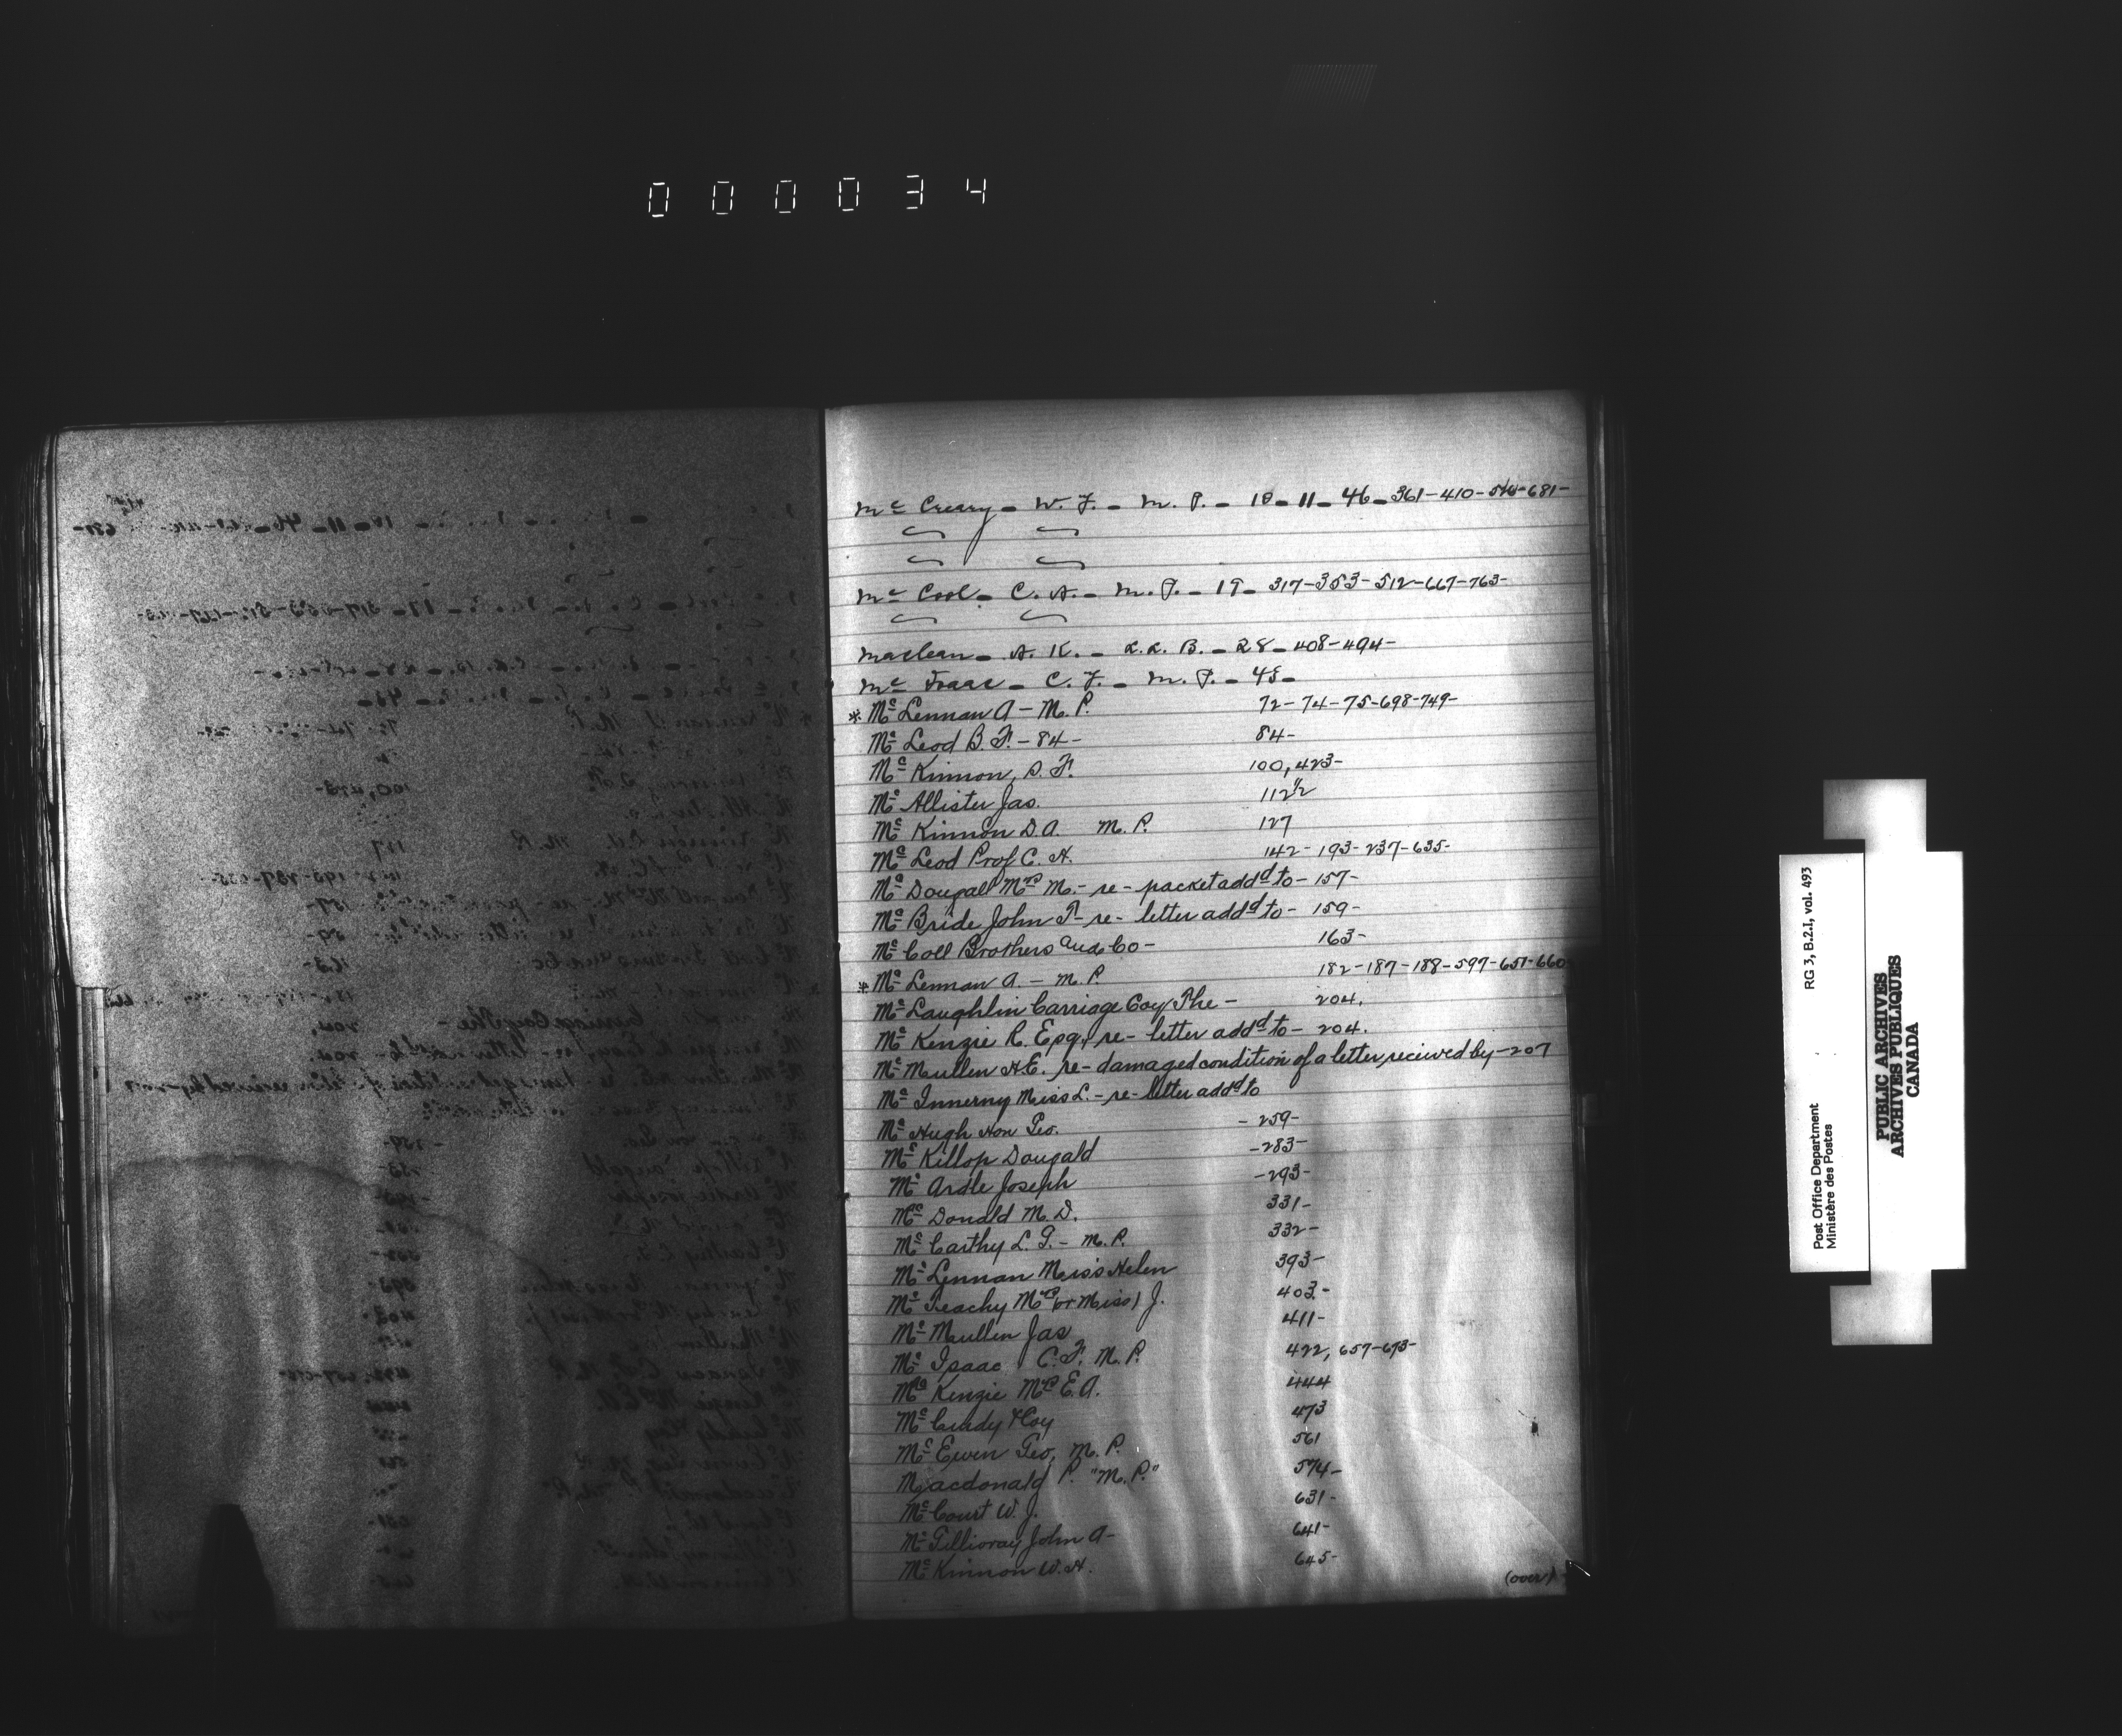 000034
Mc Creary - W. F. - M. P. - 10 - 11 - 46 - 361 - 410 - 510 - 681 -
Mc Cool - C. A. - M. P. - 19 - 317 - 353 - 512 - 667 - 763 -
Maclean - A. K. - L.L. B. - 28 - 408 - 494 -
Mc Isaac - C. F. - M. P. - 45 -
* Mc Lennan A - M. P. 72 - 74 - 75 - 698 - 749 -
Mc Leod B. F. - 84 - 84 -
Mc Kinnon, D. F. 100, 423 -
Mc Allister Jas. 112 1/2
Mc Kinnon D. A. M. P. 127
Mc Leod Prof C. H. 142 - 193 - 237 - 635 -
Mc Dougall Mrs M. - re - packet addd to - 157 -
Mc Bride John P - re - letter addd to - 159 -
Mc Coll Brothers and Co - 163 -
* Mc Lennan A. - M. P. 182 - 187 - 188 - 597 - 651 - 660
Mc Laughlin Carriage Coy The - 204.
Mc Kenzie R. Esq, re - letter addd to - 204.
Mc Mullen H. E. re - damaged condition of a letter received by - 207
Mc Innerny Miss L. - re - letter addd to
Mc Hugh Hon Geo. - 259 -
Mc Killop Dougald - 283 -
Mc Ardle Joseph - 293 -
Mc Donald M. D. 331 -
Mc Carthy L. G. - M. P. 332 -
Mc Lennan Miss Helen 393 -
Mc Geachy Mrs (or Miss) J. 403 -
Mc Mullin Jas 411 -
Mc Isaac C. F. M. P. 422, 657 - 693 -
Mc Kenzie Mrs E. A. 444
Mc Cready & Coy 473
Mc Ewen Geo, M. P. 561
Macdonald P. "M. P." 574 -
Mc Court W. J. 631 -
Mc Gillivray John A - 641 -
Mc Kinnon W. H. 645 -
(over)
RG 3, B.2.I, vol. 493
Post Office Department
Ministère des Postes
PUBLIC ARCHIVES
ARCHIVES PUBLIQUES
CANADA